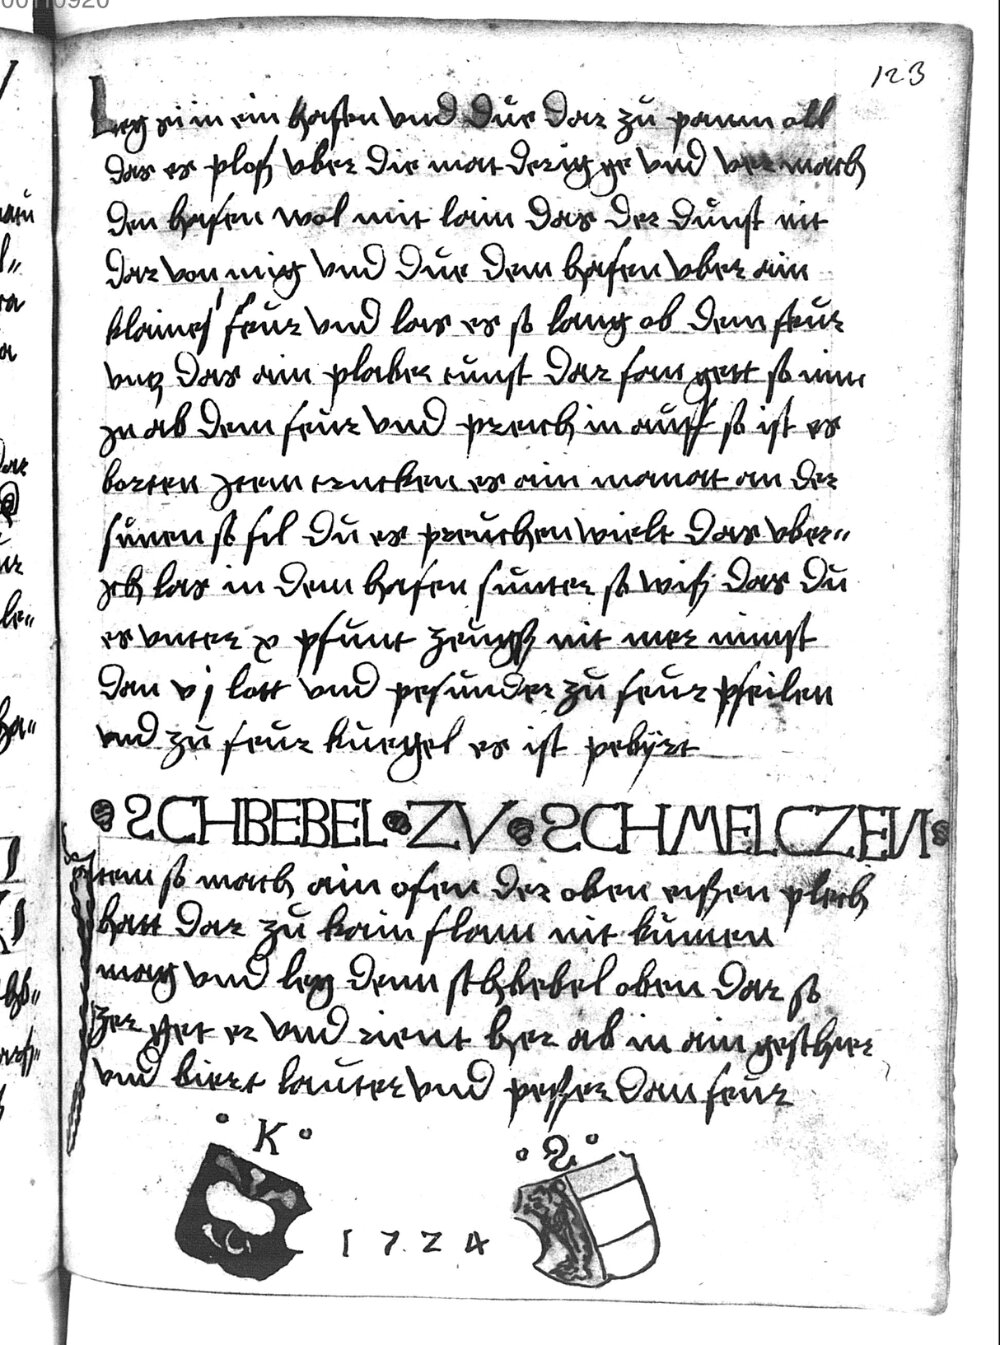 123
Leg si in ein hafen vnd due dar zu paum oll
das es plos vber die matderig ge vnd ver mach
den hafen wol mit laim das der dunst nit
dar von mig vnd due dem hafen vber ain
klaines feur vnd las es so lang ob dem feur
vncz das ain plaber dunst dar fan gett so nim
in ab dem feur vnd prech in auff so ist es
horten item trucken es ain monatt an der
sunen so fil du es preuchen wielt das vber"
ich las in dem hafen sunter so wiss das du
es vnter x pfunt zeugss nit mer nimst
dan vj lott vnd pesunder zu feur pfeilen
vnd zu feur kuegel es ist pebÿrt
SCHBEBEL ZV SCHMELCZEN
Item so mach ain ofen der oben eissen plech
hatt dar zu kain flam nit kumen
mag vnd leg denn schbebel oben dar so
zer get er vnd rient her ab in ain geschier
vnd biert lauter vnd pesser dan feur
K S
1 7 2 4